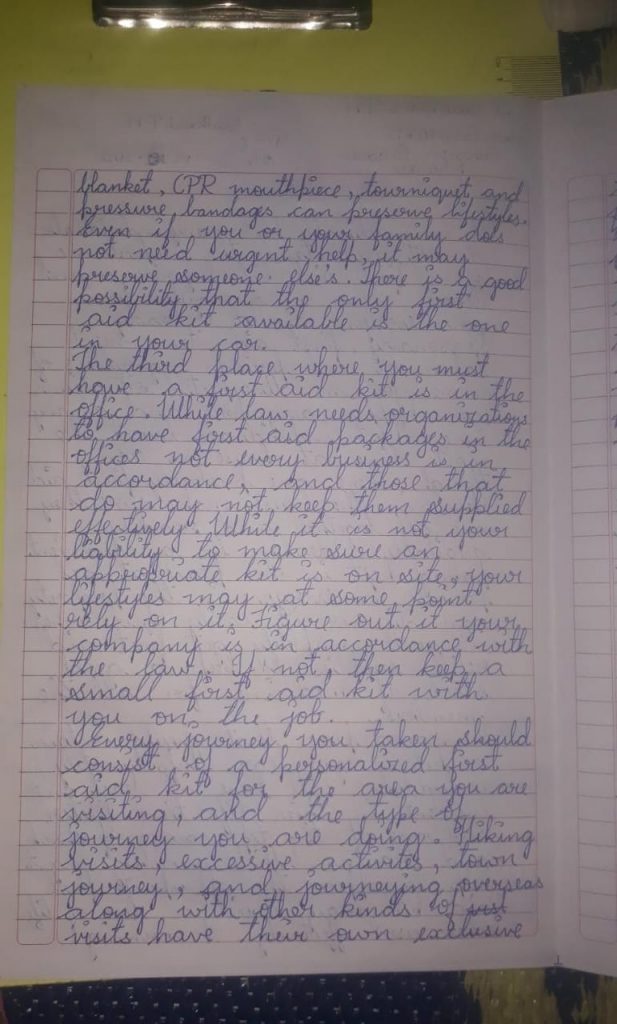 blanket, CPR mouthpiece, tourniquet, and
pressure bandages can preserve lifestyles.
Even if you or your family does
not need urgent help, it may
preserve someone else's. There is a good
possibility that the only first
aid kit available is the one
in your car.
The third place where you must
have a first aid kit is in the
office. While law needs organizations
to have first aid packages in the
offices not every business is in
accordance, and those that
do may not keep them supplied
effectively. While it is not your
liability to make sure an
appropriate kit is on site, your
lifestyles may at some point
rely on it. Figure out it your
company is in accordance with
the law. If not, then keep a
small first aid kit with
you on the job.
Every journey you taken should
consist of a personalized first
aid kit for the area you are
visiting, and the type of
journey you are doing. Hiking
visits, excessive activites, town
journey, and journeying overseas
along with other kinds of
visits have their own exclusive